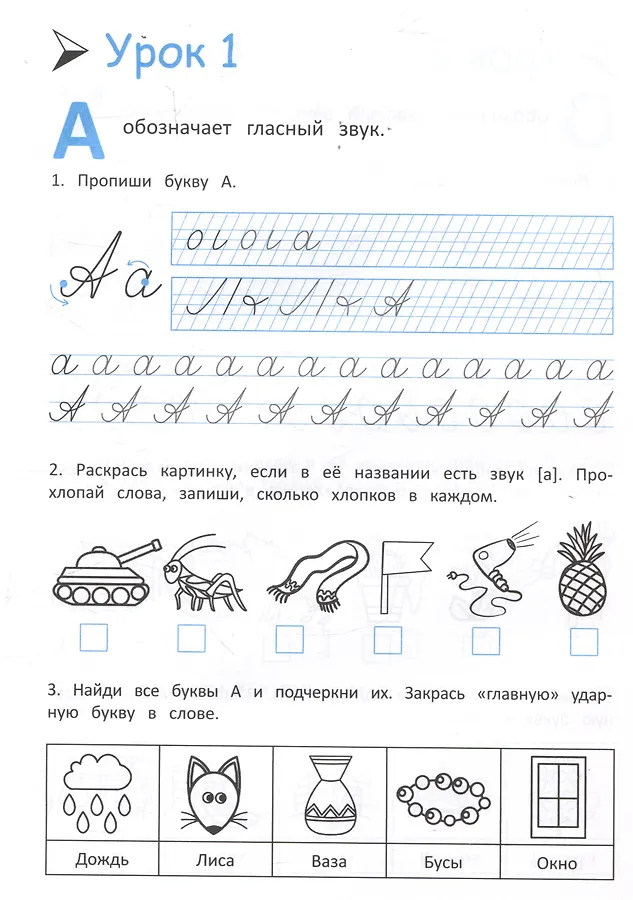 Урок 1
А обозначает гласный звук.
1. Пропиши букву А.
А а
а
А
а а а а а а а а а а а а а а
А А А А А А А А А А А
2. Раскрась картинку, если в её названии есть звук [а]. Про-
хлопай слова, запиши, сколько хлопков в каждом.
3. Найди все буквы А и подчеркни их. Закрась «главную» удар-
ную букву в слове.
Дождь Лиса Ваза Бусы Окно